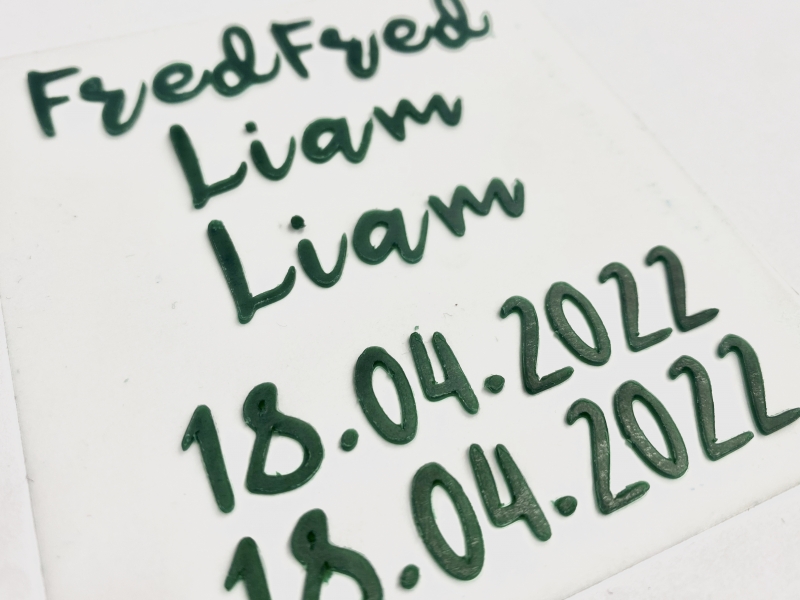 FredFred
Liam
Liam
18.04.2022
18.04.2022